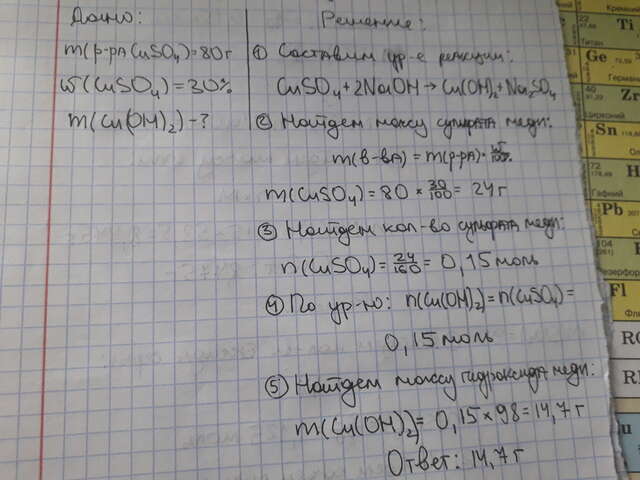 Дано:
m(р-ра CuSO₄)=80г
ω(CuSO₄)=30%
m(Cu(OH)₂)-?
Решение:
① Составим ур-е реакции:
CuSO₄+2NaOH→Cu(OH)₂+Na₂SO₄
② Найдем массу сульфата меди:
m(в-ва)=m(р-ра)·ω/100%
m(CuSO₄)=80×30/100=24г
③ Найдем кол-во сульфата меди:
n(CuSO₄)=24/160=0,15моль
④ По ур-ю: n(Cu(OH)₂)=n(CuSO₄)=
0,15моль
⑤ Найдем массу гидроксида меди:
m(Cu(OH)₂)=0,15×98=14,7г
Ответ: 14,7г
Кремний
22
Ti
Титан
Ge
Германий
40
Zr
Цирконий
Sn
Олово
72
178,49
Гафний
Pb
104
Резерфорд
Fl